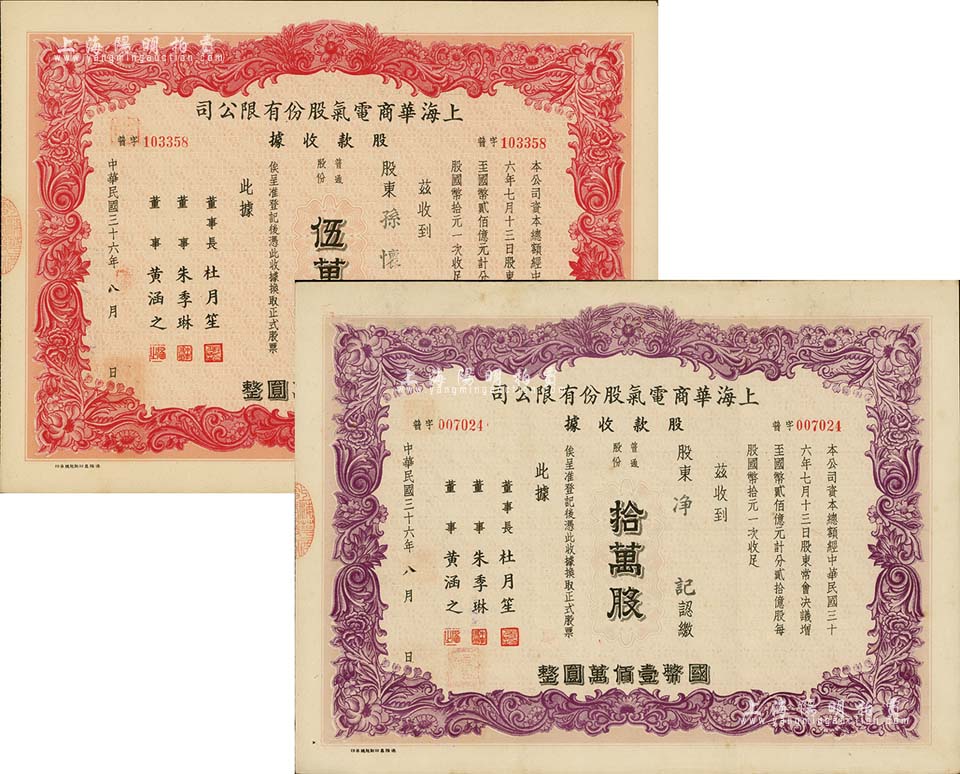 上海陽明拍賣
www.yangmingauction.com
司公限有份股氣電商華海上
據收款股
普字 103358
普字 103358
本公司資本總額經中
六年七月十三日股東
至國幣貳佰億元計分
股國幣拾元一次收足
茲收到
股東 孫懷
普通股份
伍萬
俟呈准登記後憑此收據換取正式股票
此據
董事長 杜月笙
董事 朱季琳
董事 黃涵之
中華民國三十六年八月 日
整圓
上海陽明拍賣
www.yangmingauction.com
司公限有份股氣電商華海上
據收款股
普字 007024
普字 007024
本公司資本總額經中華民國三十
六年七月十三日股東常會決議增
至國幣貳佰億元計分貳拾億股每
股國幣拾元一次收足
茲收到
股東 净記 認繳
普通股份
拾萬股
俟呈准登記後憑此收據換取正式股票
此據
董事長 杜月笙
董事 朱季琳
董事 黃涵之
中華民國三十六年八月 日
整圓萬佰壹幣國
上海陽明拍賣
www.yangmingauction.com